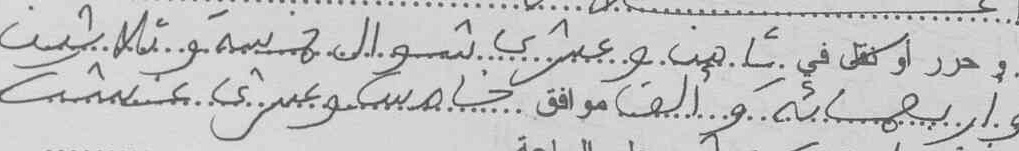 و حرر أو نقل في ثامن وعشري شوال خمسة وثلاثين
وأربعمائة وألف موافق خامس وعشري غشت